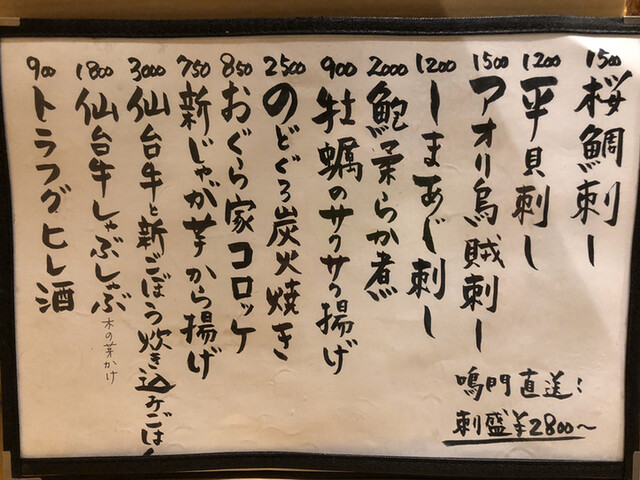 1500 桜鯛刺し
1200 平貝刺し
1500 アオリ烏賊刺し
1200 しまあじ刺し
2000 鮑柔らか煮
900 牡蠣のサクサク揚げ
2500 のどぐろ炭火焼き
850 おぐら家コロッケ
750 新じゃが芋から揚げ
3000 仙台牛と新ごぼう炊き込みごはん
1800 仙台牛しゃぶしゃぶ 木の芽かけ
900 トラフグヒレ酒
鳴門直送:
刺盛¥2800~